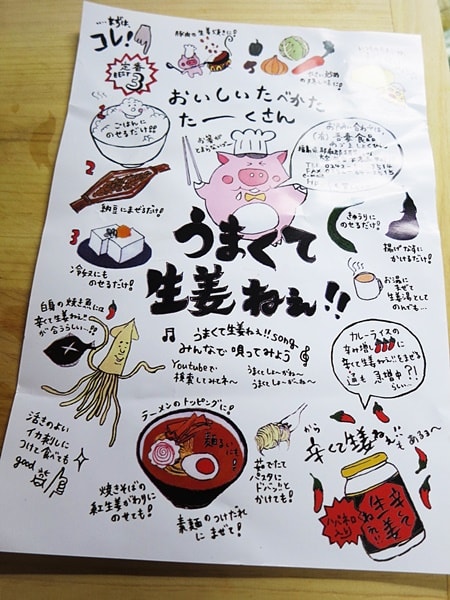 まずは、
コレ!
定番
BEST
3
豚肉の生姜焼きに!
おいしいたべかた
たーーくさん
1
ごはんに
のせるだけ!!
お箸が
とまらないぜー
2
納豆にまぜるだけ!
きゅうりに
のせるだけ!
揚げなすに
かけるだけ!
3
冷奴にも
のせるだけ!
うまくて
生姜ねぇ!!
お湯に
まぜて
生姜湯として
のんでも…
白身の焼き魚には
辛くて生姜ねえ!!
が合うらしい…!!
うまくて生姜ねぇ!!song
みんなで唄ってみよう
Youtubeで
検索してみてネ〜
うまくてしょーがねー
うまくてしょーがーねー
カレーライスの
辛み増しに
辛くて生姜ねぇ!!をまぜる
通も急増中?!
らしい…
活きのよい
イカ刺しに
つけて食べても
good
ラーメンのトッピングに!
麺るいにも!
焼きそばの
紅生姜がわりに
のせても!
素麺のつけだれ
にまぜて!
茹でたて
パスタに
ドバッと
かけても!
から
辛くて生姜ねぇ!!も
あるよ〜
辛くて
生姜
ねぇ!!
ハバネロ
入り